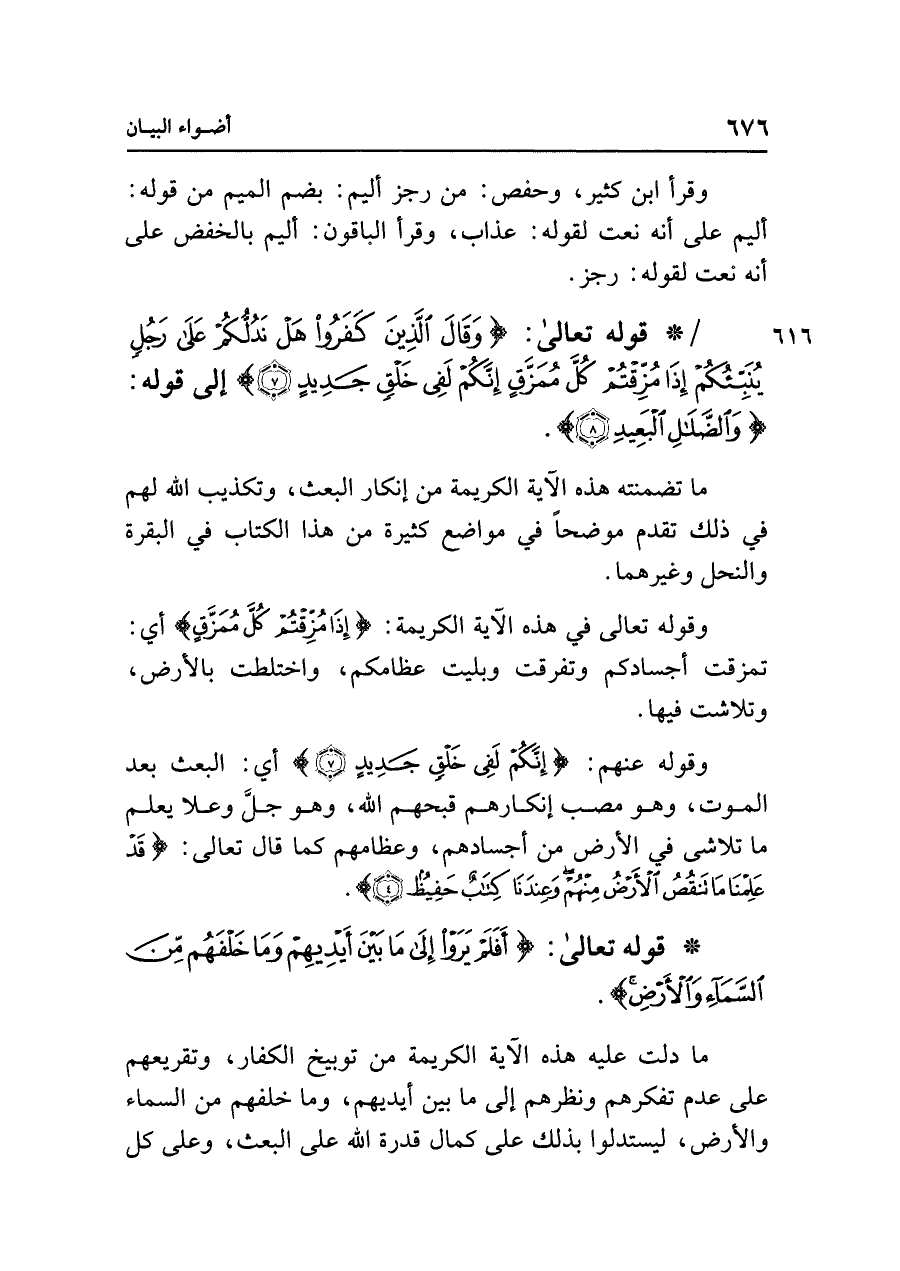 ٦٧٦ أضـواء البيـان
وقرأ ابن كثير، وحفص: من رجز أليم: بضم الميم من قوله:
أليم على أنه نعت لقوله: عذاب، وقرأ الباقون: أليم بالخفض على
أنه نعت لقوله: رجز.
٦١٦ / * قوله تعالىٰ: ﴿وَقَالَ ٱلَّذِينَ كَفَرُوا۟ هَلْ نَدُلُّكُمْ عَلَىٰ رَجُلٍ
يُنَبِّئُكُمْ إِذَا مُزِّقْتُمْ كُلَّ مُمَزَّقٍ إِنَّكُمْ لَفِى خَلْقٍ جَـدِيدٍ ٧﴾ إلى قوله:
﴿وَٱلضَّلَـٰلِ ٱلْبَعِيدِ ٨﴾.
ما تضمنته هذه الآية الكريمة من إنكار البعث، وتكذيب الله لهم
في ذلك تقدم موضحاً في مواضع كثيرة من هذا الكتاب في البقرة
والنحل وغيرهما.
وقوله تعالى في هذه الآية الكريمة: ﴿إِذَا مُزِّقْتُمْ كُلَّ مُمَزَّقٍ﴾ أي:
تمزقت أجسادكم وتفرقت وبليت عظامكم، واختلطت بالأرض،
وتلاشت فيها.
وقوله عنهم: ﴿إِنَّكُمْ لَفِى خَلْقٍ جَـدِيدٍ ٧﴾ أي: البعث بعد
المـوت، وهـو مصـب إنكـارهـم قبحهـم الله، وهـو جـلَّ وعـلا يعلـم
ما تلاشى في الأرض من أجسادهم، وعظامهم كما قال تعالى: ﴿قَدْ
عَلِمْنَا مَا تَنقُصُ ٱلْأَرْضُ مِنْهُمْ ۖ وَعِندَنَا كِتَـٰبٌ حَفِيظٌۢ ٤﴾.
* قوله تعالىٰ: ﴿أَفَلَمْ يَرَوْا۟ إِلَىٰ مَا بَيْنَ أَيْدِيهِمْ وَمَا خَلْفَهُم مِّنَ
ٱلسَّمَآءِ وَٱلْأَرْضِ ۚ﴾.
ما دلت عليه هذه الآية الكريمة من توبيخ الكفار، وتقريعهم
على عدم تفكرهم ونظرهم إلى ما بين أيديهم، وما خلفهم من السماء
والأرض، ليستدلوا بذلك على كمال قدرة الله على البعث، وعلى كل